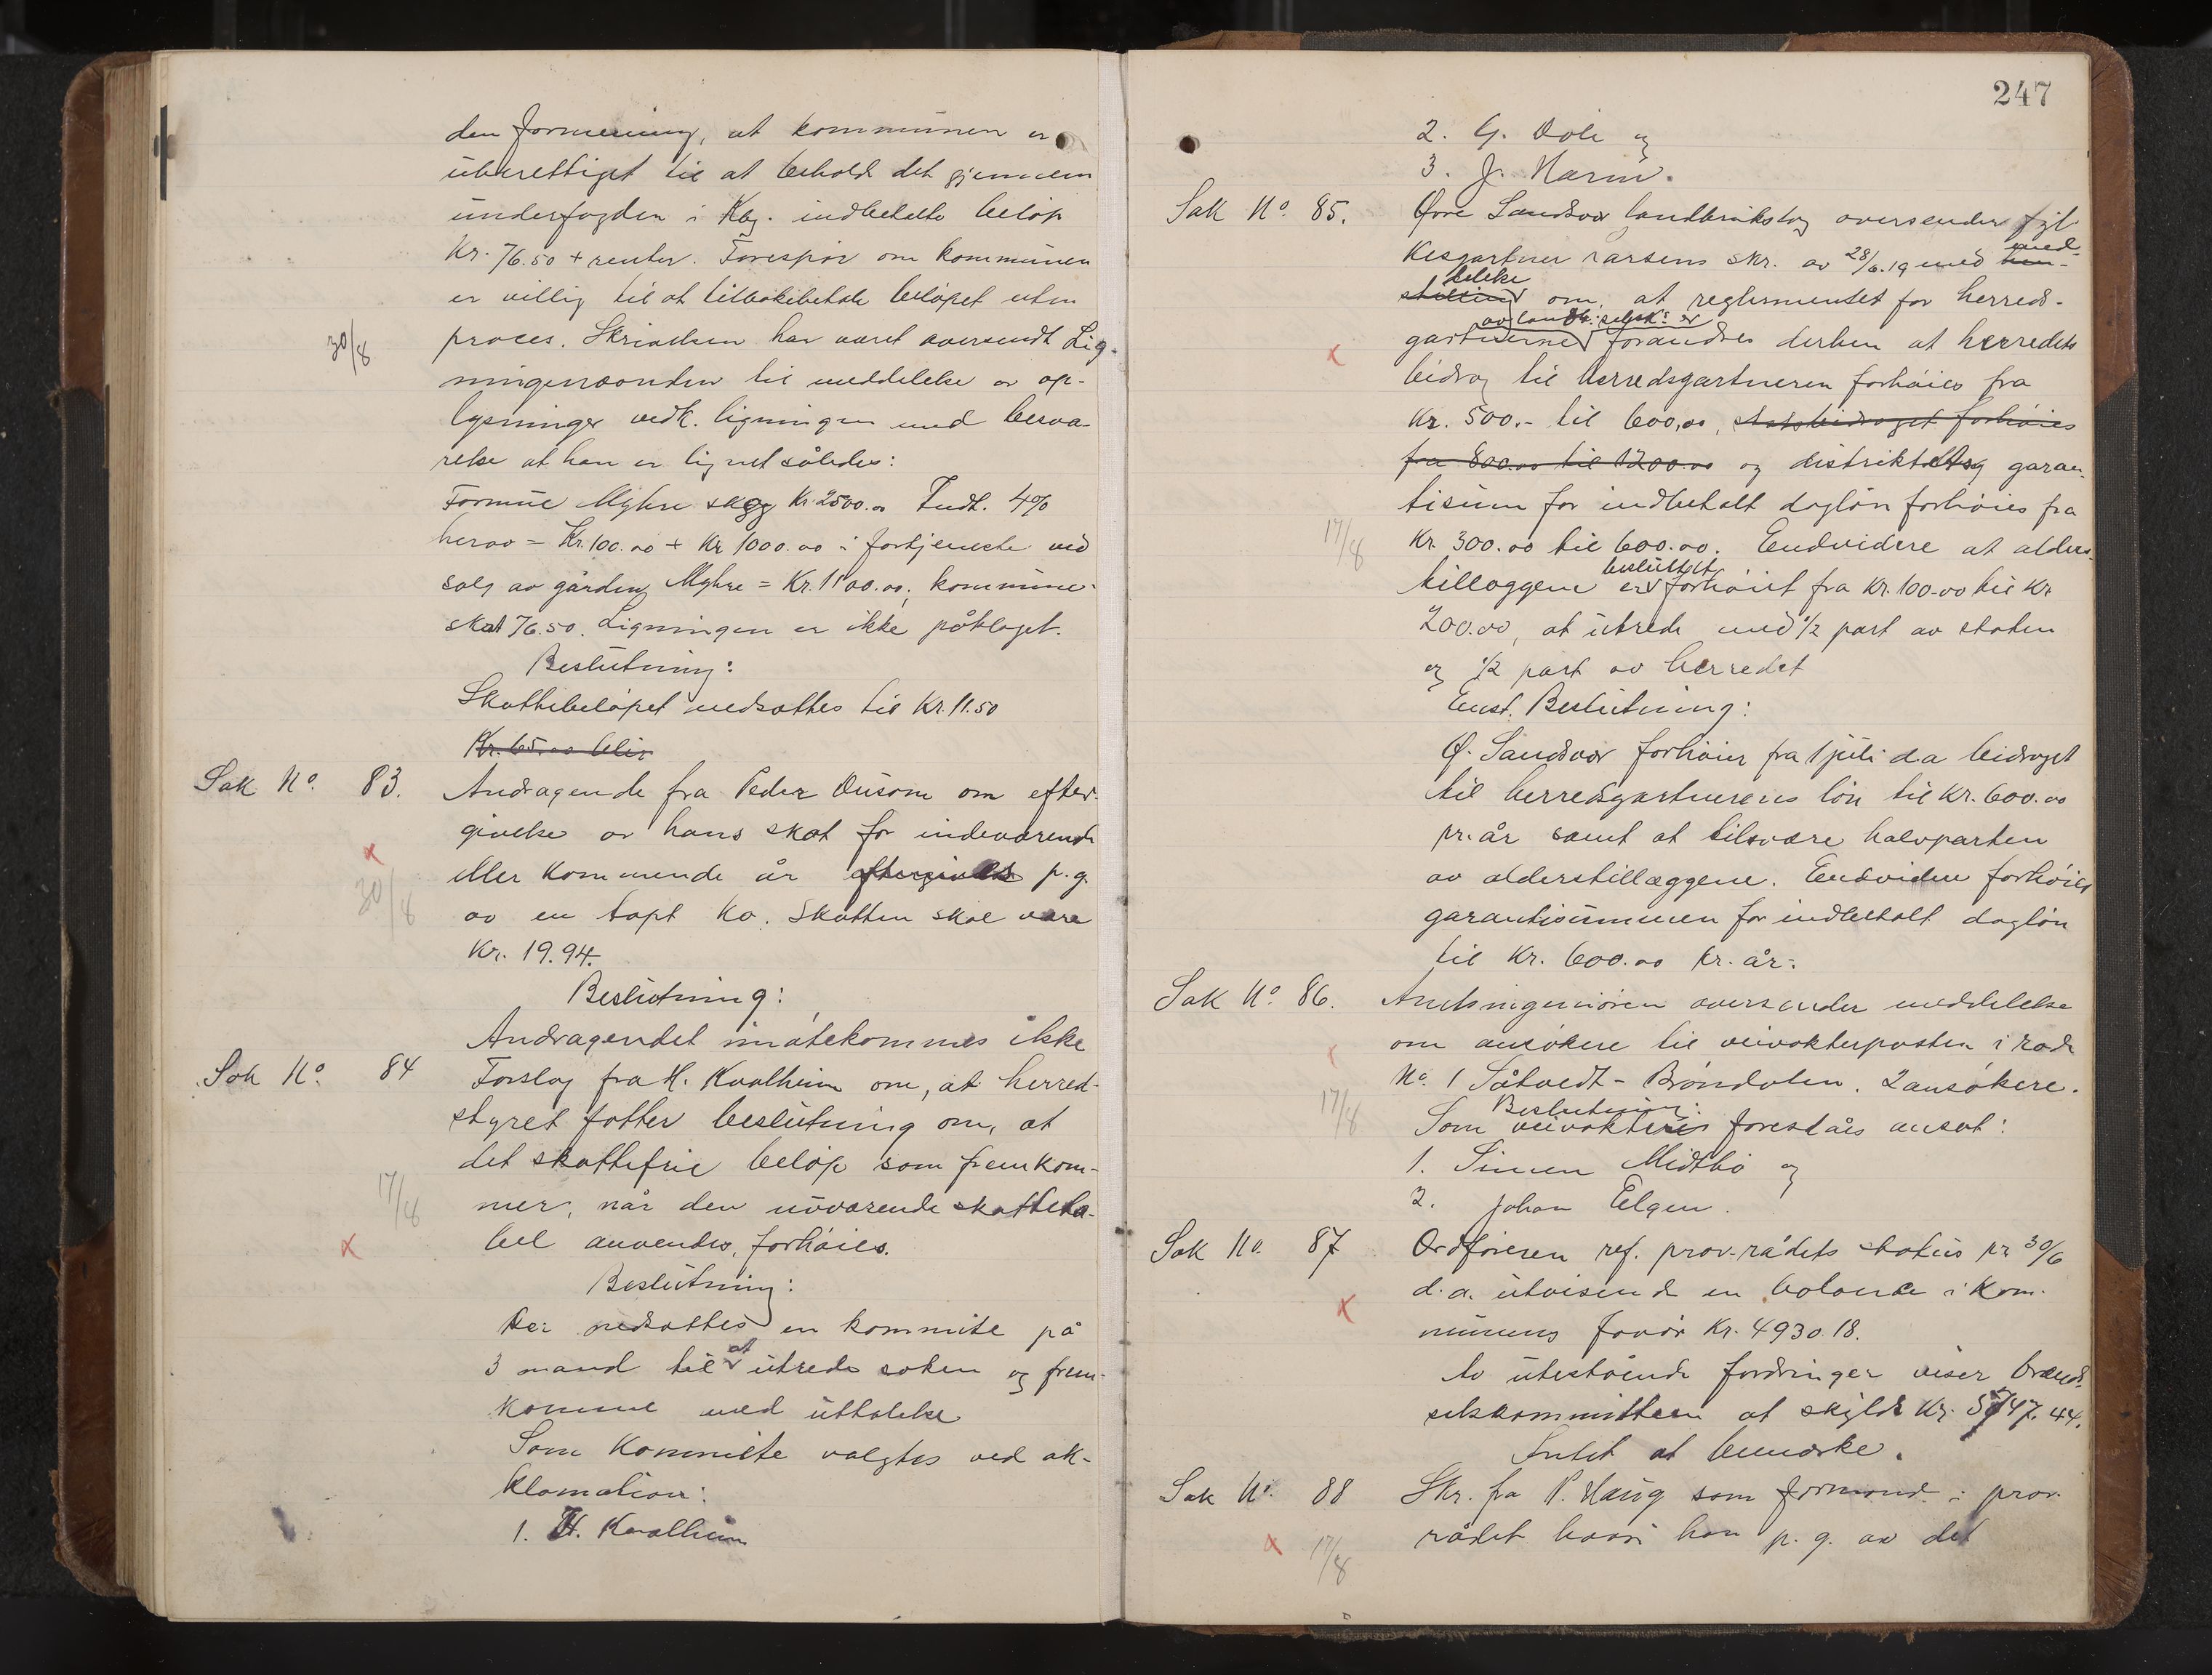 den formening, at kommunen er
uberettiget til at beholde det gjennem
underfogden i Kbg. indbetalte beløp
Kr. 76.50 + renter. Forespør om kommunen
er villig til at tilbakebetale beløpet uten
30/8
proces. Skrivelsen har været oversendt Lig-
ningsnævnden til meddelelse av op-
lysninger vedk. ligningen med besva-
relse at han er lignet således:
Formue Myhre skog Kr 2500.00 Indt. 4%
herav = Kr. 100.00 + Kr 1000.00 i fortjeneste ved
salg av gården Myhre = Kr. 1100.00, kommune-
skat 76.50. Ligningen er ikke påklaget.
Beslutning:
Skattebeløpet nedsættes til Kr. 11.50
Kr. 65.00 blir
Sak No. 83. Andragende fra Peder Ousone om efter-
givelse av hans skat for indeværende
eller kommende år eftergives p.g.
30/8
av en tapt ko. Skatten skal være
Kr. 19.94.
Beslutning:
Andragendet imøtekommes ikke
Sak No. 84 Forslag fra H. Kvalheim om, at herred-
styret fatter beslutning om, at
det skattefrie beløp som fremkom-
17/8
mer, når den nuværende skatteta-
bel anvendes, forhøies.
Beslutning:
Der nedsættes en kommite på
3 mand til at utrede saken og frem-
komme med uttalelse
Som kommite valgtes ved ak-
klamation:
1. H. Kvalheim
247
2. G. Dole og
3. J. Narum.
Sak No. 85. Øvre Sandsvær landbrukslag oversender fyl-
kesgartner Larsens skr. av 28/6.19 med hen- med-
stilling delelse om, at reglementet for herreds-
gartnerne av landh. selsk. er forandres derhen at herredets
bidrag til herredsgartneren forhøies fra
Kr. 500.- til 600,00, statsbidraget forhøies
fra 800.00 til 1200.00 og distriktets garan-
tisum for indbetalt dagløn forhøies fra
17/8
Kr. 300.00 til 600.00. Endvidere at alders-
tillæggene er besluttet forhøiet fra Kr. 100.00 til Kr
200.00, at utrede med 1/2 part av staten
og 1/2 part av herredet
Enst. Beslutning:
Ø. Sandsvær forhøier fra 1 juli da bidraget
til herredsgartnerens løn til Kr. 600.00
pr. år samt at tilsvare halvparten
av alderstillæggene. Endvidere forhøies
garantisummen for indbetalt dagløn
til Kr. 600.00 pr. år.
Sak No. 86. Amtsingeniøren oversender meddelelse
om ansøkere til veivokterposten i rode
No. 1 Såtvedt - Brøndalen. 2 ansøkere.
17/8
Beslutning:
Som veivokteres foreslåes ansat:
1. Simen Midtbø og
2. Johan Elgen.
Sak No. 87 Ordføreren ref. prov.rådets status pr 30/6
d.a. utvisende en balance i kom-
munens favør Kr. 4930.18.
Av utestående fordringer viser brænd-
selskommitteen at skylde Kr. 5747.44.
Intet at bemærke.
Sak No. 88 Skr. fra P. Haug som formand i prov.
17/8
rådet hvori han p.g. av det